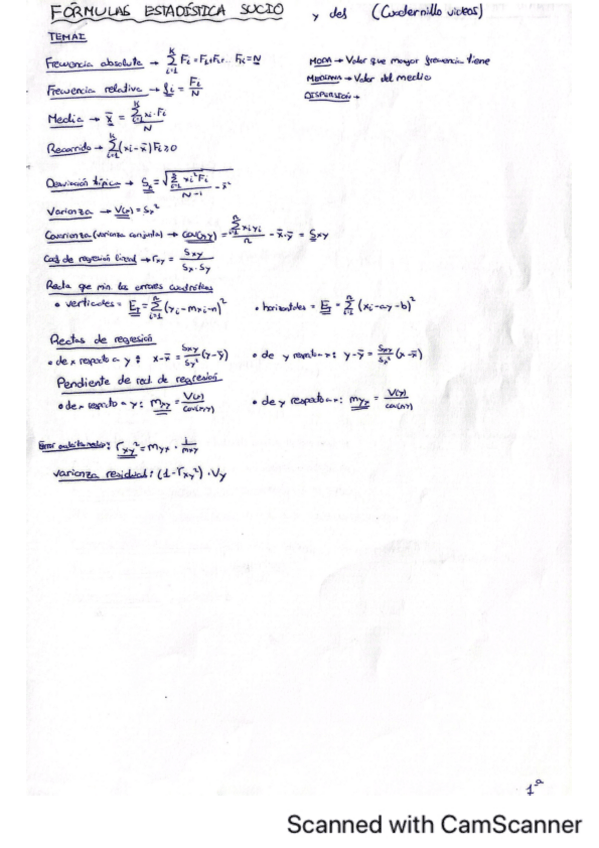 FÓRMULAS ESTADÍSTICA SUCIO y des (Cuadernillo videos)
TEMA I
Frecuencia absoluta → Σ(i=1, K) Fi = F1+F2+F3... Fk = N
MODA → Valor que mayor frecuencia tiene
Frecuencia relativa → fi = Fi/N
MEDIANA → Valor del medio
DISPERSIÓN →
Media → x̄ = Σ(i=1, K) xi·Fi / N
Recorrido → Σ(i=1, K) (xi - x̄) Fi ≥ 0
Desviación típica → Sx = √(Σ(i=1) xi² Fi / N-1 - x̄²)
Varianza → V(x) = Sx²
Covarianza (varianza conjunta) → cov(x,y) = Σ(i=1, n) xi yi / n - x̄·ȳ = Sxy
Coef de regresión lineal → rxy = Sxy / Sx·Sy
Recta que min los errores cuadráticos
• verticales = EI = Σ(i=1, n) (yi - mxi - n)²
• horizontales = EI = Σ(i=1, n) (xi - ay - b)²
Rectas de regresión
• de x respecto a y: x - x̄ = Sxy/Sy² (y - ȳ)
• de y respecto a x: y - ȳ = Sxy/Sx² (x - x̄)
Pendiente de rect. de regresión
• de x respecto a y: mxy = V(x)/cov(x,y)
• de y respecto a x: myx = V(y)/cov(x,y)
Error : rxy² = myx · 1/mxy
varianza residual: (1 - rxy²) · Vy
1ª
Scanned with CamScanner